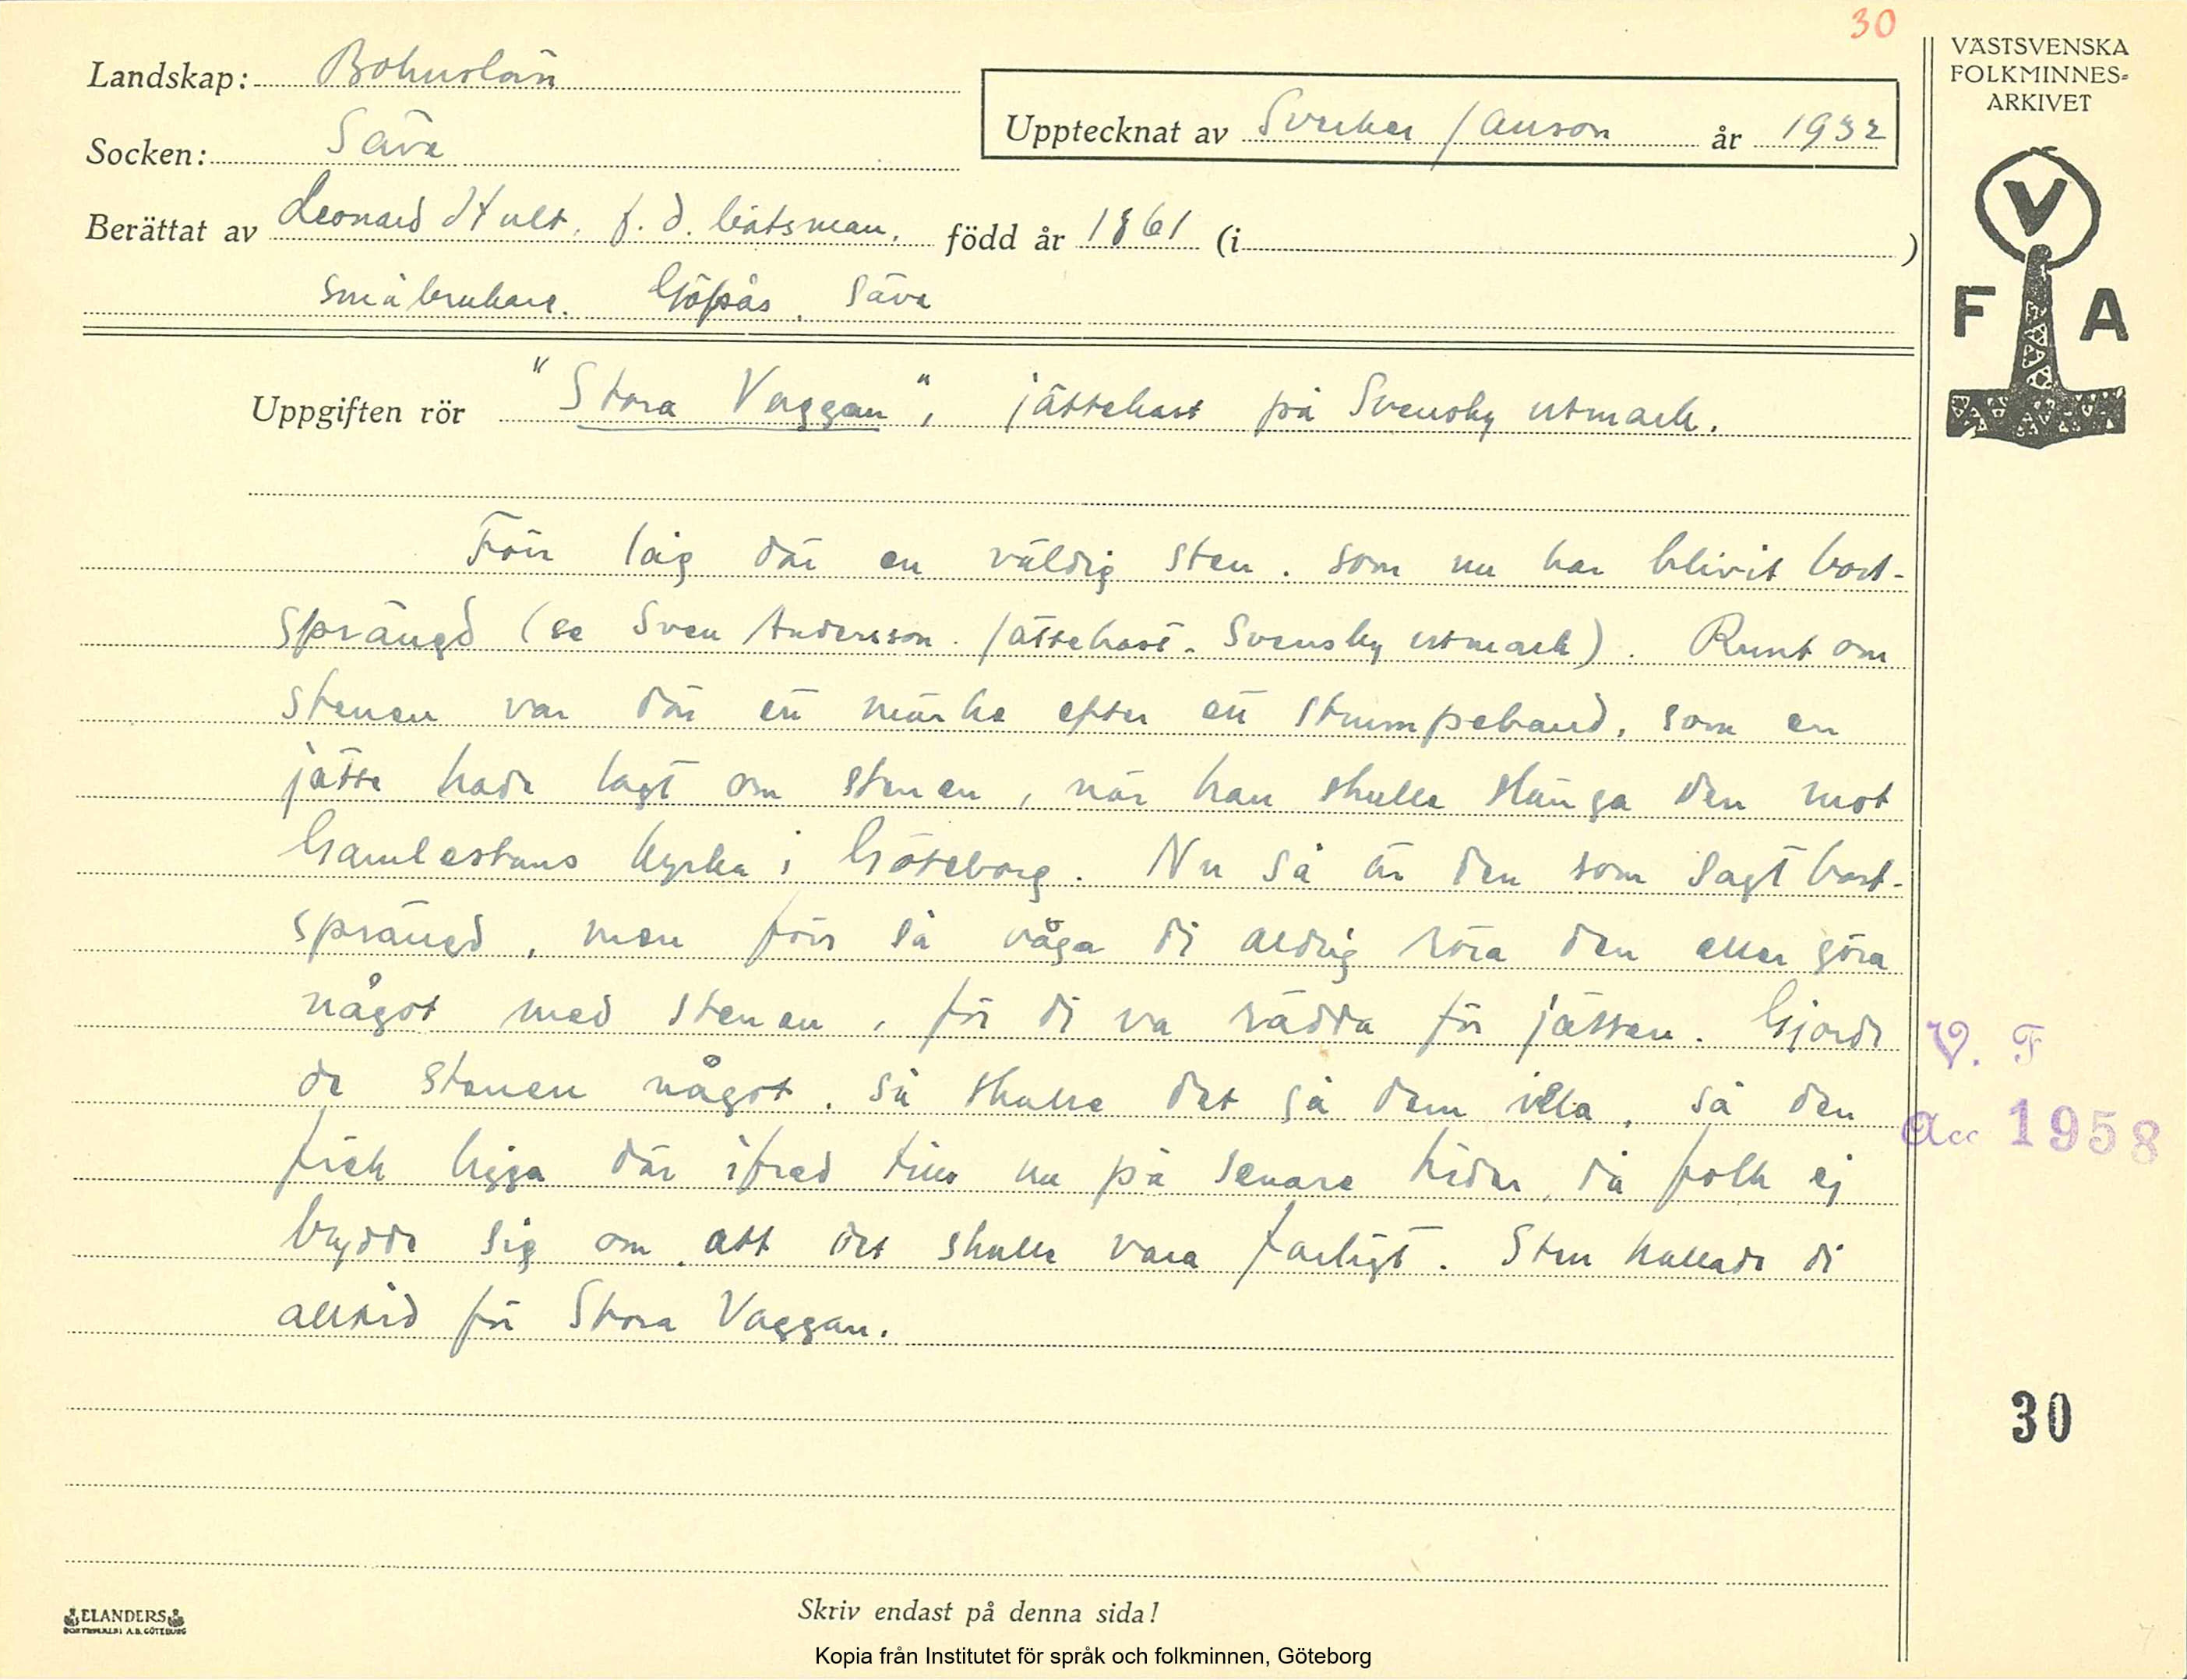 30
VÄSTSVENSKA
FOLKMINNES-
ARKIVET
Landskap: Bohuslän
Upptecknat av Sverker Janson år 1932
Socken: Säve
Berättat av Leonard Hult. f. d. båtsman, född år 1861 (i )
småbrukare. Göpås, Säve
V
F A
Uppgiften rör "Stora Vaggan", jättekast på Svensby utmark.
Förr låg där en väldig sten. som nu har blivit bort-
sprängd (se Sven Andersson. Jättekast. Svensby utmark). Runt om
stenen var där ett märke efter ett strumpeband, som en
jätte hade lagt om stenen, när han skulle slänga den mot
Gamlestans kyrka i Göteborg. Nu så är den som sagt bort-
sprängd, men förr så våga di aldrig röra den eller göra
något med stenen, för di va rädda för jätten. Gjorde
de stenen något, så skulle det gå dem illa, så den
fick ligga där ifred tills nu på senare tider, då folk ej
brydde sig om att det skulle vara farligt. Sten kallade di
alltid för Stora Vaggan.
V. F
Acc 1958
30
Skriv endast på denna sida!
ELANDERS
BOKTRYCKERI A.B. GÖTEBORG
Kopia från Institutet för språk och folkminnen, Göteborg